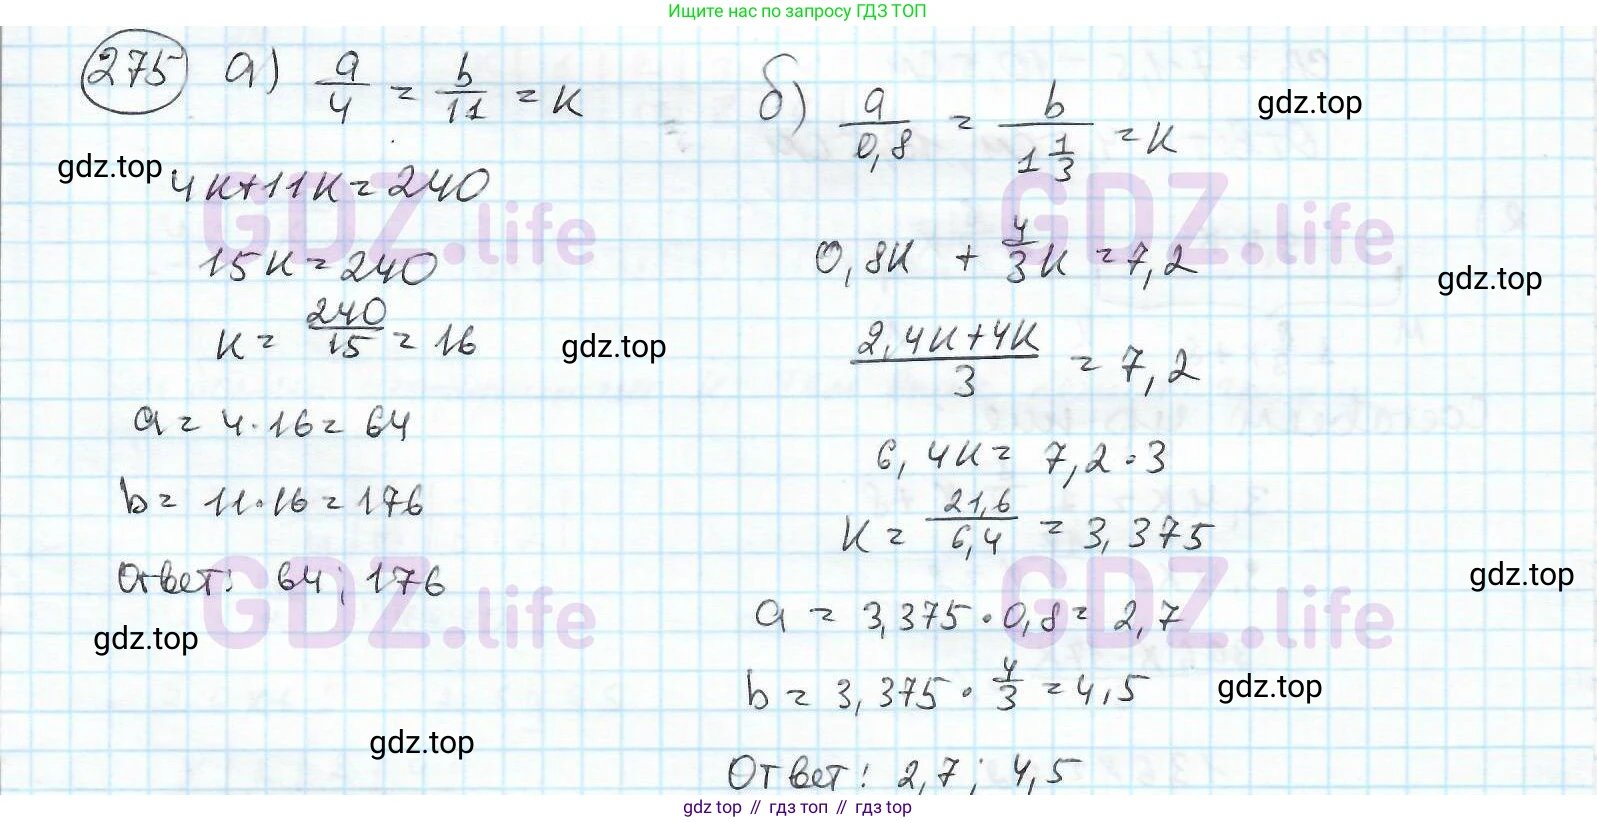 Ищите нас по запросу ГДЗ ТОП
275 а) a/4 = b/11 = k
gdz.top
4k+11k=240
15k=240
k = 240/15 = 16
gdz.top
a = 4·16 = 64
b = 11·16 = 176
Ответ: 64; 176
gdz.top
gdz.top
б) a/0,8 = b/1 1/3 = k
gdz.top
0,8k + 4/3k = 7,2
gdz.top
2,4k+4k/3 = 7,2
6,4k = 7,2·3
k = 21,6/6,4 = 3,375
gdz.top
a = 3,375·0,8 = 2,7
b = 3,375·4/3 = 4,5
gdz.top
Ответ: 2,7; 4,5
GDZ.life
GDZ.life
GDZ.life
GDZ.life
gdz top // гдз топ // gdz top